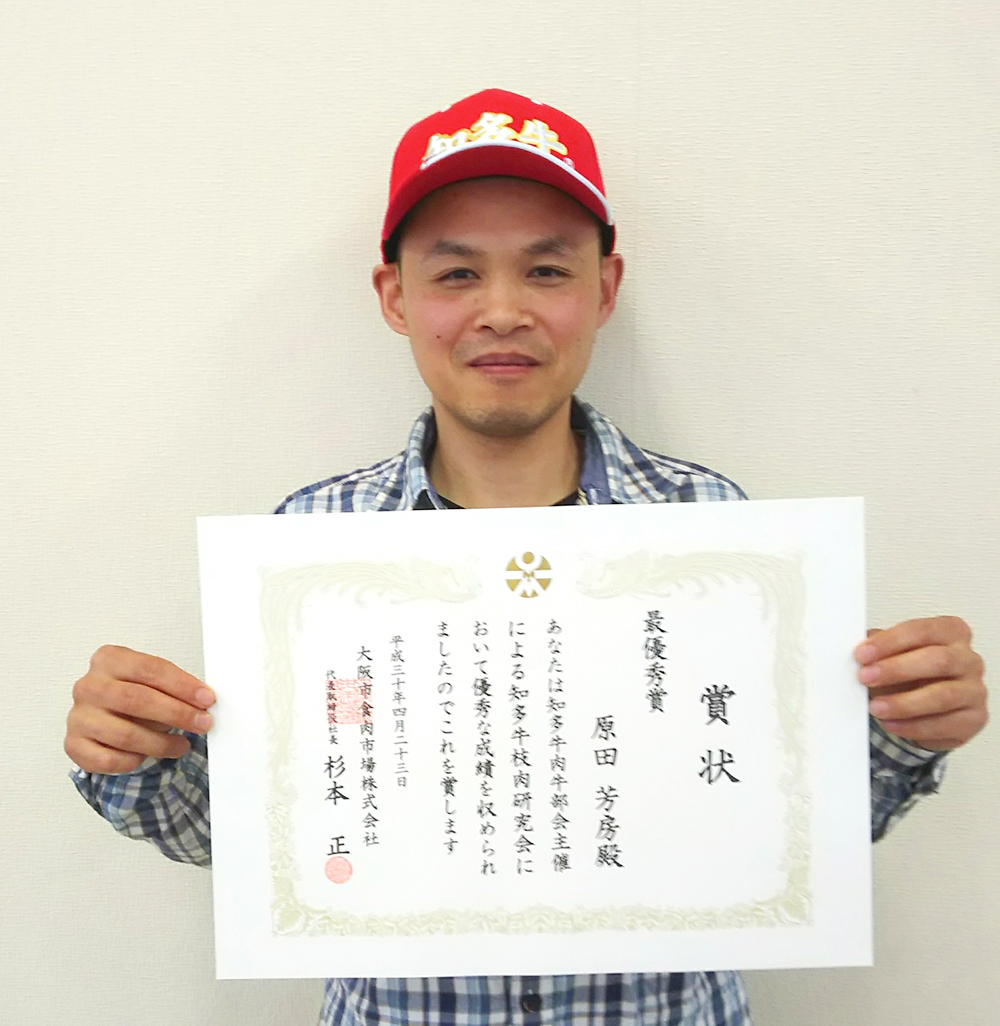 知多牛
賞状
最優秀賞
原田 芳房殿
あなたは知多牛肉牛部会主催
による知多牛枝肉研究会に
おいて優秀な成績を収められ
ましたのでこれを賞します
平成三十年四月二十三日
大阪市食肉市場株式会社
代表取締役社長 杉本 正